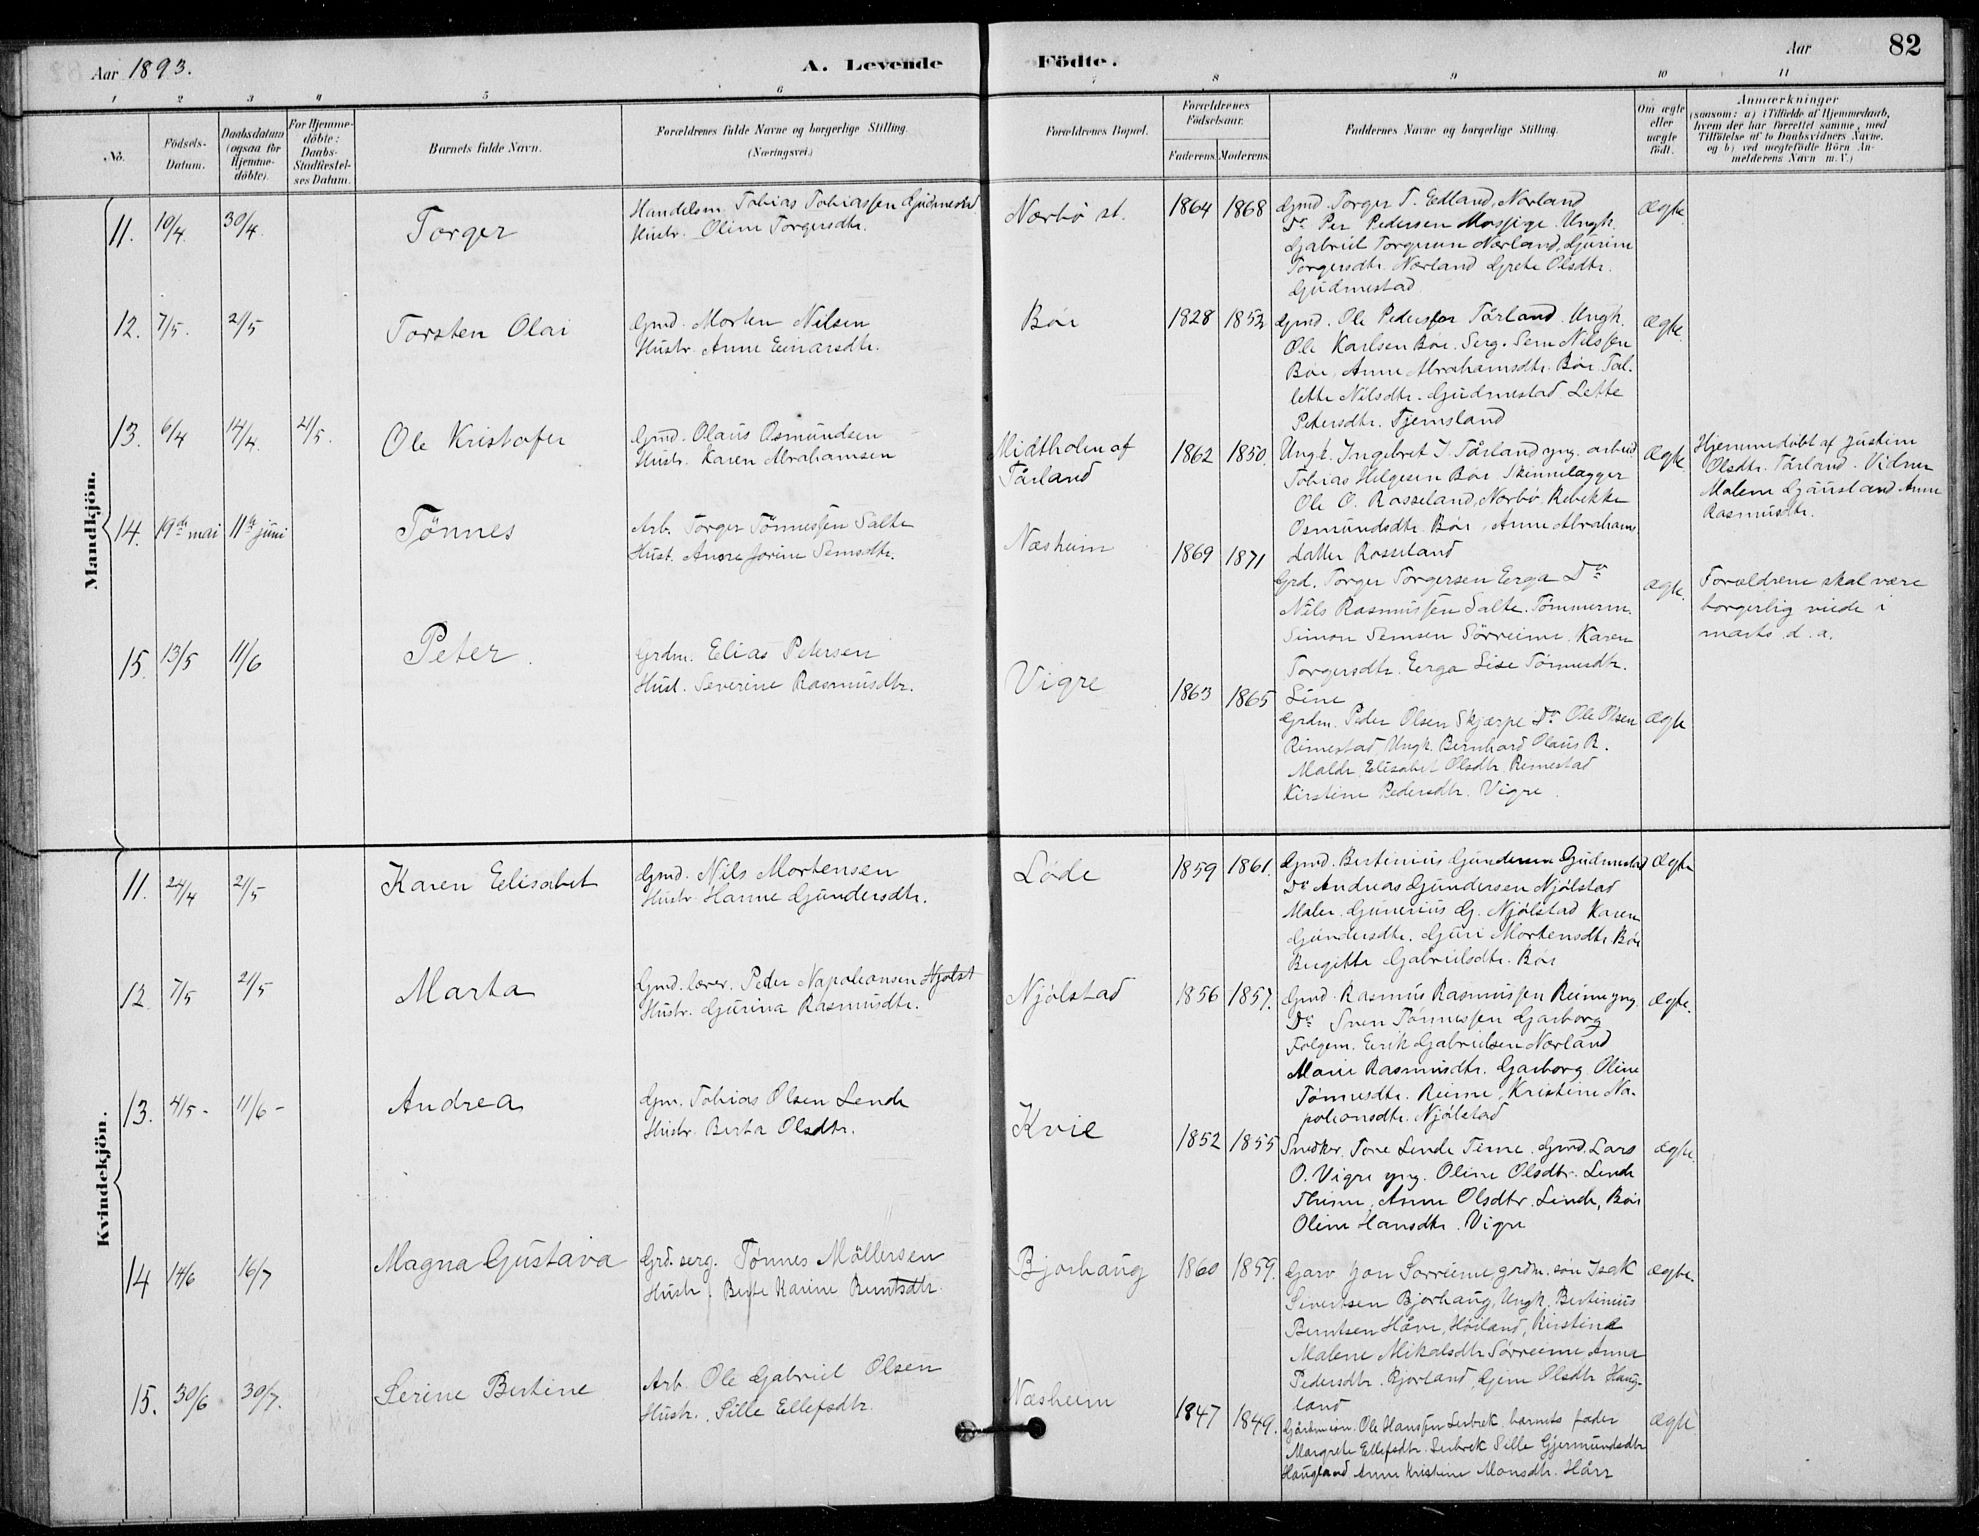 Aar 1893.
A. Levende
Födte.
Aar
82
1
2
3
4
5
6
7
8
9
10
11
No.
Födsels-
Datum.
Daabsdatum
(ogsaa for
Hjemme-
döbte).
For Hjemme-
döbte:
Daabs-
Stadfæstel-
ses Datum.
Barnets fulde Navn.
Forældrenes fulde Navne og borgerlige Stilling.
(Næringsvei.)
Forældrenes Bopæl.
Forældrenes
Födselsaar.
Faderens.
Moderens.
Faddernes Navne og borgerlige Stilling.
Om ægte
eller
uægte
födt.
Anmærkninger
(saasom: a) i Tilfælde af Hjemmedaab,
hvem der har forrettet samme, med
Tilföielse af to Daabsvidners Navne,
og b) ved uægtefödte Börn An-
melderens Navn m. V.)
Mandkjön.
11.
10/4.
30/4.
Torger
Handelsm. Tobias Tobiassen Gudmestad
Hustr. Oline Torgersdtr.
Nærbø st.
1864
1868
Gmd. Torger T. Edland, Nærland
Do Per Pedersen Mossige. Ungk.
Gabriel Torgersen Nærland, Gurine
Torgersdtr. Nærland Grete Olsdtr.
Gudmestad
Ægte.
12.
7/5.
21/5
Torsten Olai
Gmd. Morten Nilsen
Hustr. Anne Einarsdtr.
Bøe
1828
1853
Gmd. Ole Pedersen Tårland. Ungk.
Ole Karlsen Bøe. Serg. Sem Nilssen
Bøe, Anne Abrahamsdtr. Bøe. Tal-
lette Nilsdtr. Gudmestad Lette
Petersdtr. Tjemsland
Ægte.
13.
6/4
14/4.
21/5.
Ole Kristofer
Gmd. Olaus Osmundsen
Hustr. Karen Abrahamsen
Midtholen af
Tårland
1862
1850.
Ungk. Ingebret I. Tårland yng. arbeid
Tobias Helgesen Bøe Skinnelægger
Ole O. Rosseland, Nærbø. Rebekke
Osmundsdtr. Bøe, Anne Abrahams
datter Rosseland
Ægte
Hjemmedøbt af Justine
Olsdtr. Tårland. Vidner
Malene Gausland Anne
Rasmusdtr.
14.
19de mai
11te juni
Tønnes
Arb. Torger Tønnessen Salte
Hust. Anne Jorine Semsdtr.
Næsheim
1869
1871
Grd. Torger Torgersen Eerga Do
Nils Rasmussen Salte. Tømmerm.
Simon Semsen Sørreime. Karen
Torgersdtr. Eerga Lise Tønnesdtr.
Line
ægte.
Forældrene skal være
borgerlig viede i
marts d. a.
15.
13/5
11/6
Peter
Grdm. Elias Petersen
Hust. Severine Rasmusdtr.
Vigre
1863
1865
Grdm. Peder Olsen Skjærpe Do Ole Olsen
Rimestad Ungk. Bernhard Olaus R.
Malde Elisabet Olsdtr. Rimestad
Kirstine Pedersdtr. Vigre.
ægte
Kvindekjön.
11.
24/4
21/5
Karen Elisabet
Gmd. Nils Mortensen
Hustr. Hanne Gundersdtr.
Løde
1859
1861.
Gmd. Bertinius Gundersen Gudmestad
Do Andreas Gundersen Njølstad
Maler. Gunerius G. Njølstad Karen
Gundersdtr. Guri Mortensdtr. Bøe
Birgitte Gabrielsdtr. Bøe
Ægte
12.
7/5
21/5
Marta
Gmd. lærer. Peder Napoleonsen Njølst
Hustr. Gurina Rasmusdtr.
Njølstad
1856
1857.
Gmd. Rasmus Rasmussen Reime yng.
Do Sven Tønnessen Garborg
Folgem. Eirik Gabrielsen Nærland
Marie Rasmusdtr. Garborg Oline
Tønnesdtr. Reime, Kristine Na-
poleonsdtr. Njølstad
ægte.
13.
4/5 -
11/6 -
Andrea
Gm. Tobias Olsen Lende
Hustr. Berta Olsdtr.
Kvie
1852
1855
Snedker. Tore Lende Time. Gmd. Lars
O. Vigre yng. Oline Olsdtr. Lende
Thime, Anne Olsdtr. Lende, Bøe
Oline Hansdtr. Vigre
ægte.
14
14/6
16/7
Magna Gustava
Grd. serg. Tønnes Møllersen
Hustr. Berte Karine Berntsdtr.
Bjorhaug
1860
1859.
Garv Jon Sorreime grdm. søn Isak
Sivertsen Bjorhaug, Ungk. Bertinius
Berntsen Håve, Høiland, Kirstine
Malene Mikalsdtr. Sørreime Anna
Pedersdtr. Bjorland, Gjine Olsdtr. Haug-
land
ægte.
15.
30/6
30/7.
Serine Bertine
Arb. Ole Gabriel Olsen
Hustr. Sille Ellefsdtr.
Næsheim
1847
1849.
Ole Hanssen Serbrek, barnets fader
Margrete Ellefsdtr. Serbrek Sille Gjermundsdtr
Haugland Anne Kristine Monsdtr. Hårr
ægte